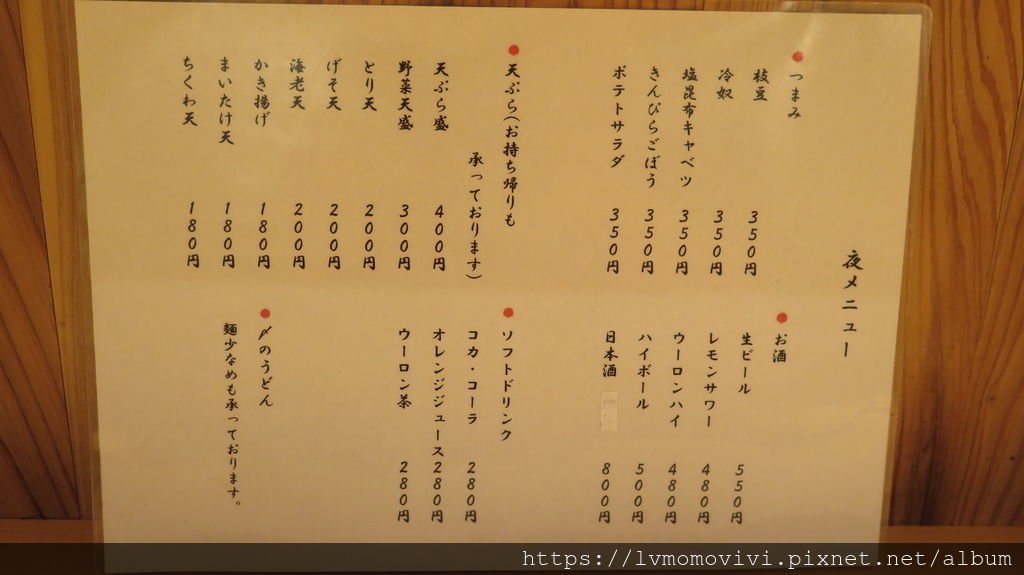 夜メニュー
●つまみ
枝豆 350円
冷奴 350円
塩昆布キャベツ 350円
きんぴらごぼう 350円
ポテトサラダ 350円
●お酒
生ビール 550円
レモンサワー 480円
ウーロンハイ 480円
ハイボール 500円
日本酒 800円
●天ぷら(お持ち帰りも
承っております)
天ぷら盛 400円
野菜天盛 300円
とり天 200円
げそ天 200円
海老天 200円
かき揚げ 180円
まいたけ天 180円
ちくわ天 180円
●ソフトドリンク
コカ・コーラ 280円
オレンジジュース 280円
ウーロン茶 280円
●〆のうどん
麺少なめも承っております。
https://lvmomovivi.pixnet.net/album